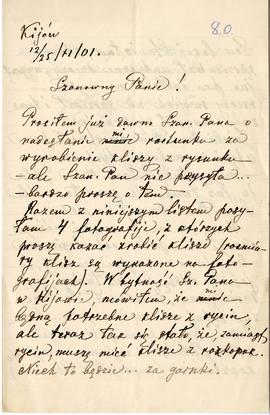 80.
Kijów
12/25/XI/01.
Szanowny Panie!
Prosiłem już dawno Szan. Pana o
nadesłanie mi rachunku za
wyrobienie kliszy z rysunku
– ale Szan. Pan nie przysyła...
– bardzo proszę o tam.
Razem z niniejszym listem posy-
łam 4 fotografije, z których
proszę kazać zrobić klisze (rozmia-
ry klisz są wyrażone na foto-
grafijach). W bytność Sz. Pana
w Kijowie, mówiłem, że
będą potrzebne klisze z rycin,
ale teraz tak się stało, że, zamiast
rycin, muszę mieć klisze z rozkopek.
Niech to będzie... za garnki.